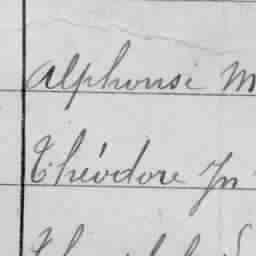 Alphonse M
Théodore Jn